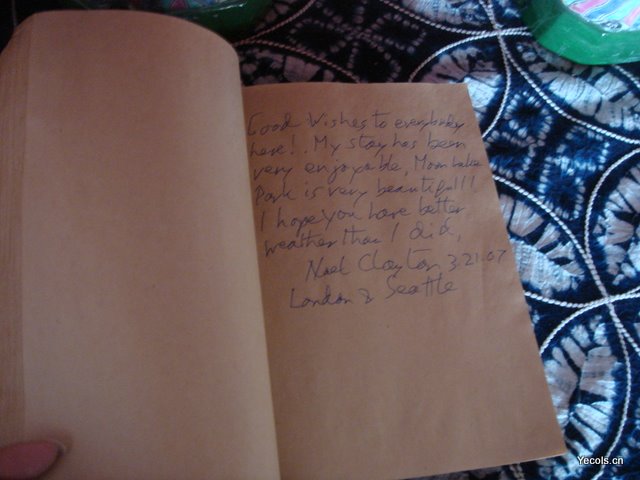 Good Wishes to everybody
here! . My stay has been
very enjoyable, Moon Lake
Park is very beautiful!!!
I hope you have better
weather than I did,
Noel Clayton 3.21.07
London & Seattle
Yecols.cn